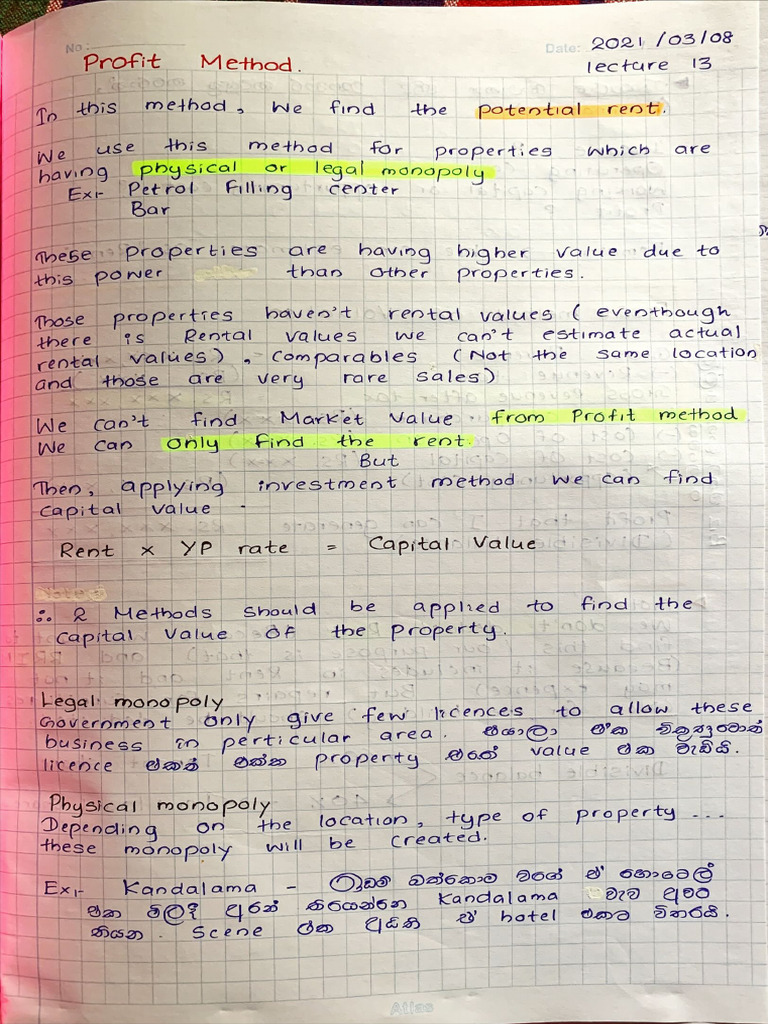 No :
Date: 2021 /03/08
Profit Method.
lecture 13
In this method, We find the potential rent.
We use this method for properties which are
having physical or legal monopoly
Ex:- Petrol Filling center
Bar
These properties are having higher value due to
this power than other properties.
Those properties haven't rental values ( eventhough
there is Rental values we can't estimate actual
rental values), comparables (Not the same location
and those are very rare sales)
We can't find Market Value from Profit method
We can only find the rent.
But
Then, applying investment method we can find
capital value .
Rent x YP rate = Capital Value
∴ 2 Methods should be applied to find the
Capital Value of the Property.
Legal monopoly
Government only give few licences to allow these
business in perticular area. එයාලා ඒක
licence එකත් එක්ක property එකේ value එක වැඩියි.
Physical monopoly
Depending on the location, type of property ...
these monopoly will be created.
Ex:- Kandalama - වගේ ඒ හොටෙල්
එක Kandalama වැව
තියන. Scene එක ඒ hotel එකට විතරයි.
Atlas